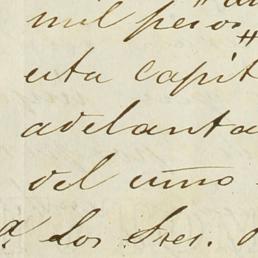 mil pesos
esta capit
adelanta
del uno
a. los Sres.